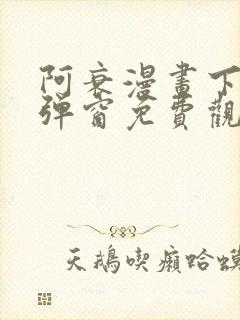 阿衰漫畫下
彈窗免費觀
天鵝喫癩蛤蟆